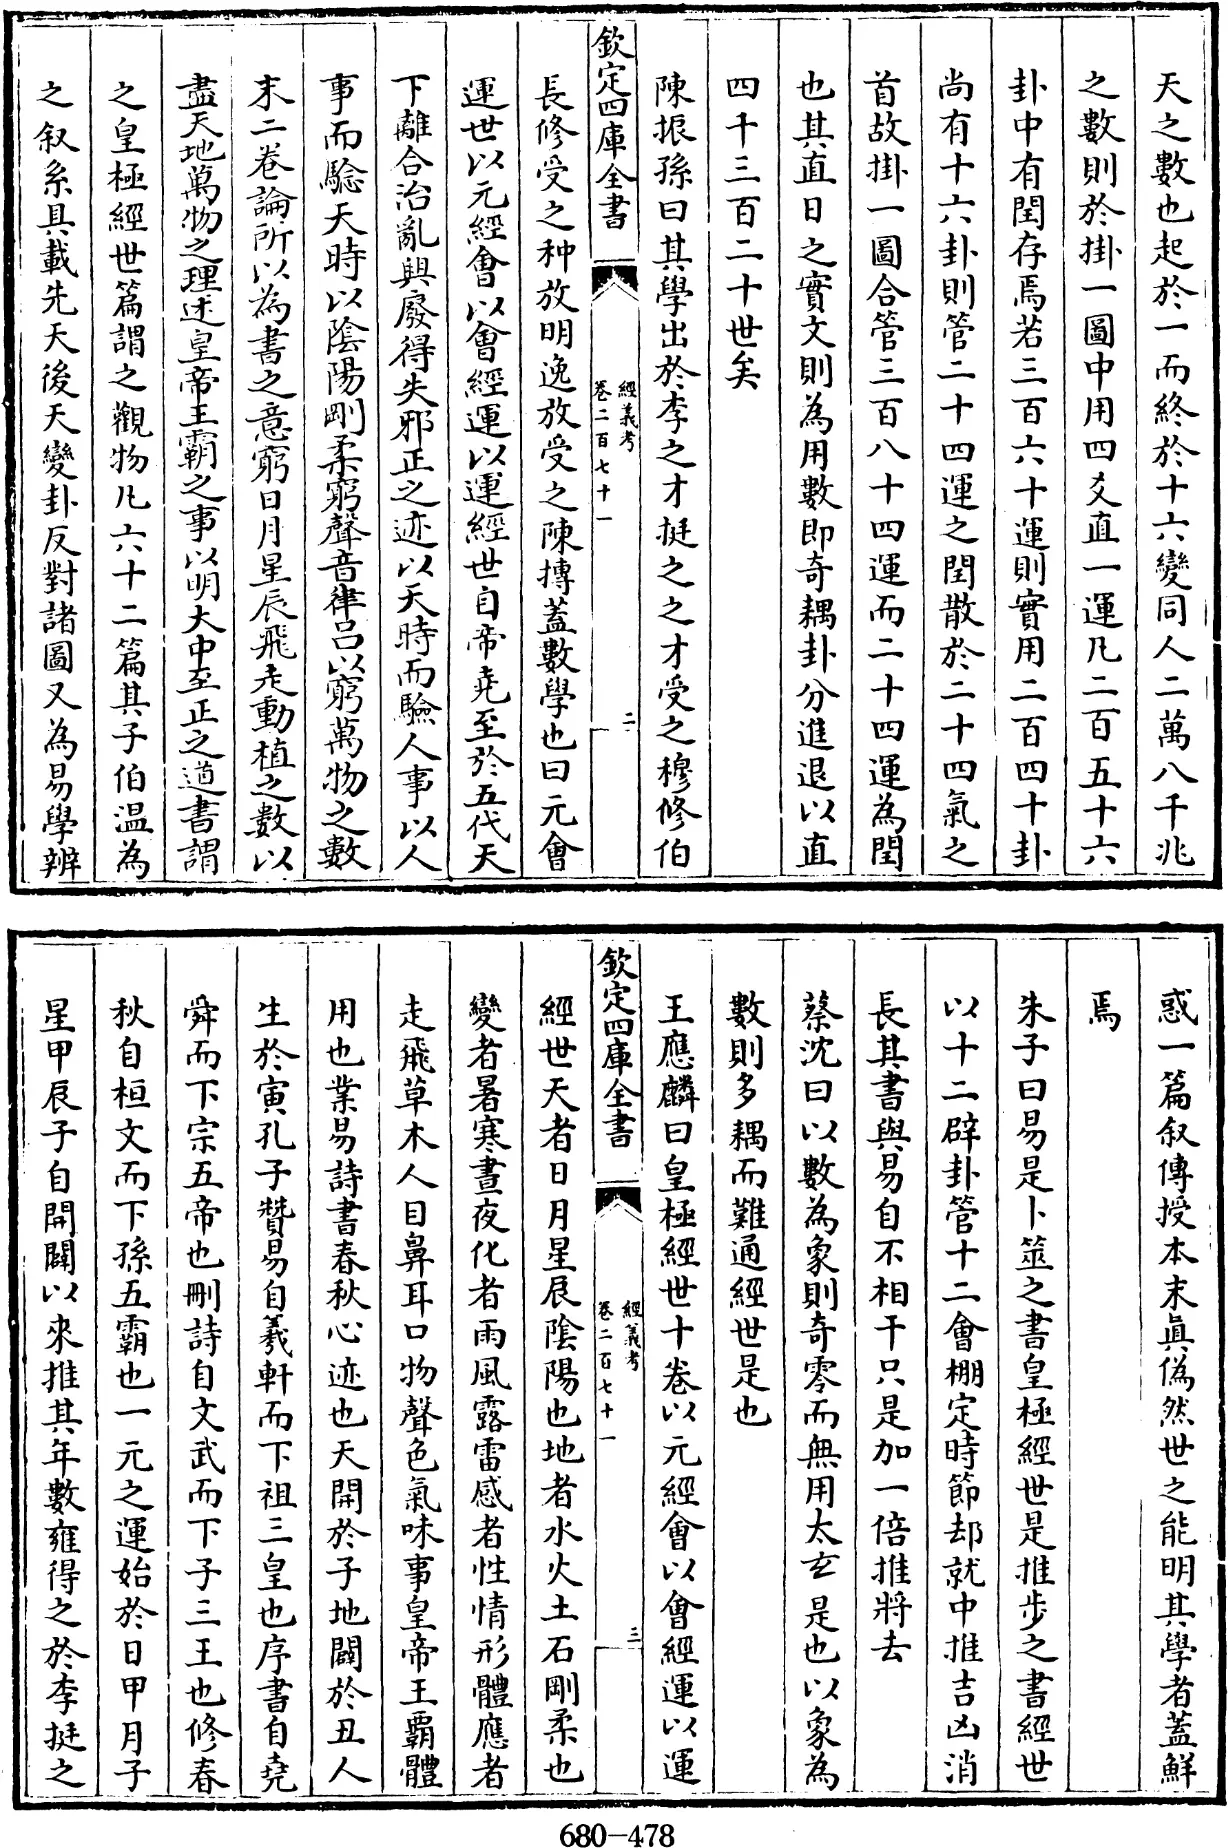 天之數也起於一而終於十六變同人二萬八千兆
之數則於掛一圖中用四爻直一運凡二百五十六
卦中有閏存焉若三百六十運則實用二百四十卦
尚有十六卦則管二十四運之閏散於二十四氣之
首故掛一圖合管三百八十四運而二十四運為閏
也其直日之實文則為用數即奇耦卦分進退以直
四千三百二十世矣
陳振孫曰其學出於李之才挺之之才受之穆修伯
欽定四庫全書
經義考
卷二百七十一
二
長修受之种放明逸放受之陳摶蓋數學也曰元會
運世以元經會以會經運以運經世自帝堯至於五代天
下離合治亂興廢得失邪正之迹以天時而驗人事以人
事而驗天時以陰陽剛柔窮聲音律呂以窮萬物之數
末二卷論所以為書之意窮日月星辰飛走動植之數以
盡天地萬物之理述皇帝王霸之事以明大中至正之道書謂
之皇極經世篇謂之觀物凡六十二篇其子伯溫為
之叙系具載先天後天變卦反對諸圖又為易學辨
惑一篇叙傳授本末真偽然世之能明其學者蓋鮮
焉
朱子曰易是卜筮之書皇極經世是推步之書經世
以十二辟卦管十二會棚定時節却就中推吉凶消
長其書與易自不相干只是加一倍推將去
蔡沈曰以數為象則奇零而無用太玄是也以象為
數則多耦而難通經世是也
王應麟曰皇極經世十卷以元經會以會經運以運
欽定四庫全書
經義考
卷二百七十一
三
經世天者日月星辰陰陽也地者水火土石剛柔也
變者暑寒晝夜化者雨風露雷感者性情形體應者
走飛草木人目鼻耳口物聲色氣味事皇帝王霸體
用也業易詩書春秋心迹也天開於子地闢於丑人
生於寅孔子贊易自羲軒而下祖三皇也序書自堯
舜而下宗五帝也刪詩自文武而下子三王也修春
秋自桓文而下孫五霸也一元之運始於日甲月子
星甲辰子自開闢以來推其年數雍得之於李挺之
680-478